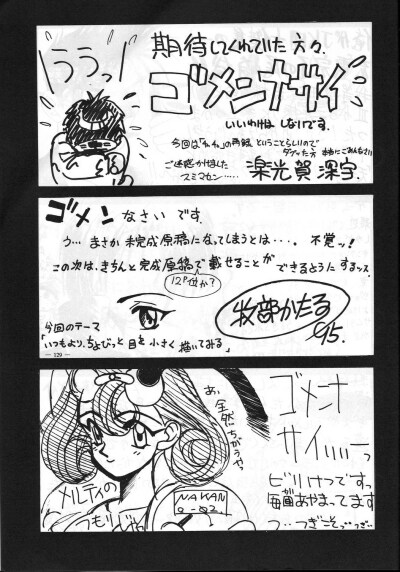 ううっ
期待してくれていた方々、
ゴメンナサイ
いいわけは しないです。
今回は「ねね」の再録 ということらしいので
ダブッた方 ホントにごめんなさい
ご迷惑かけました
スミマセン……
楽光賀 深宇
ゴメンなさい です。
う… まさか 未完成原稿になってしまうとは…。不覚ッ!
この次は、きちんと完成原稿で載せることが できるようにするッス。
12P位か?
牧部かたる
'95.
今回のテーマ
「いつもより、ちょびっと 目を 小さく 描いてみる」
— 129 —
あ、全然ちがうや。
ゴメンナ
サイiiiーっ
ビリけつですっ
毎回あやまってます
つ…つぎこそ
メルティの
つもりじゃ
NAKAN